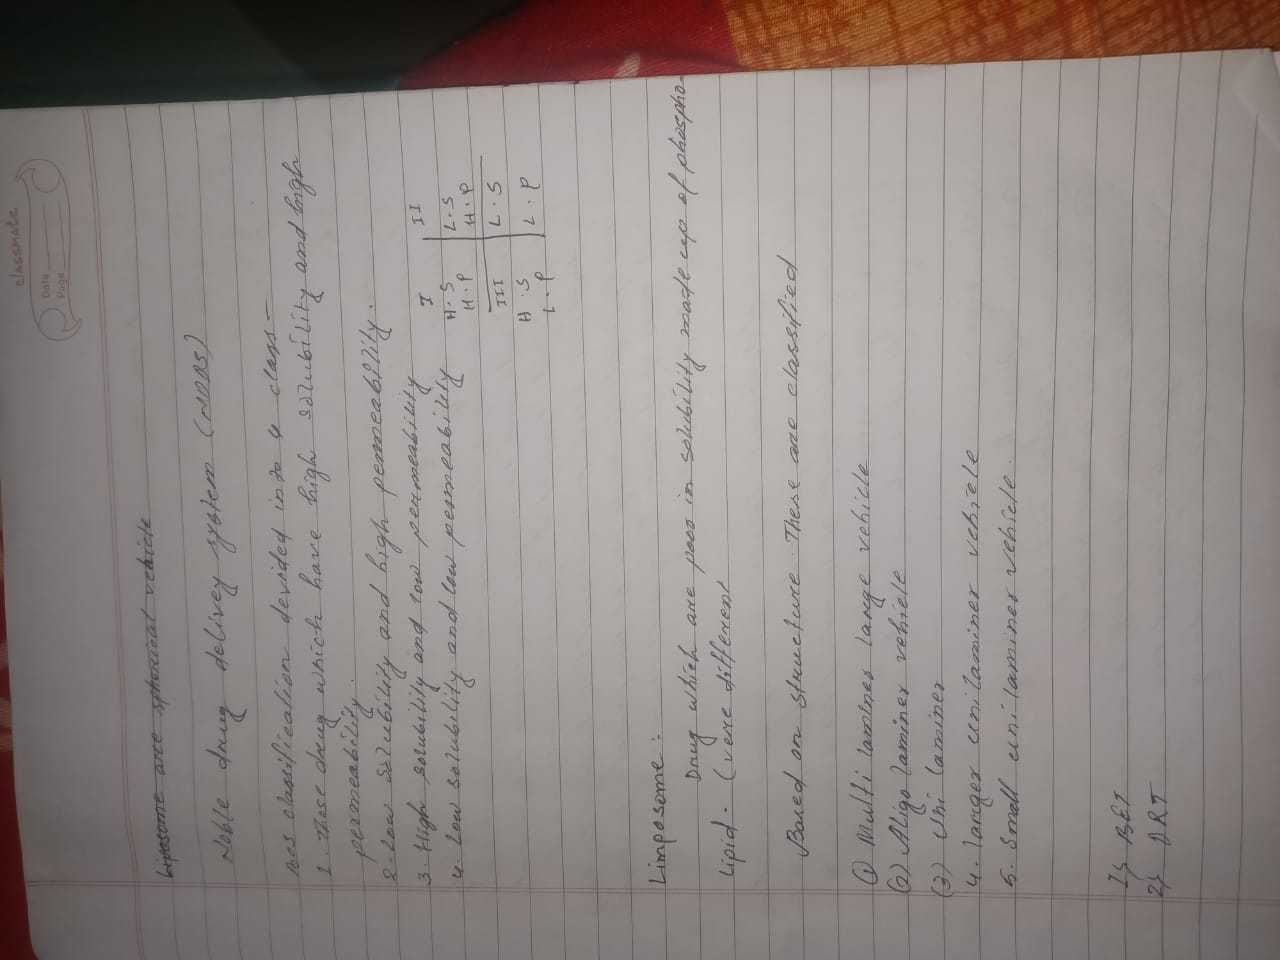 classmate
Date
Page
Liposome are spherical vehicle
Noble drug delivey system (NDDS)
classification devided into 4 class -
1. Those drug which have high solubility and high
permeability.
2. Low solubility and high permeability.
3. High solubility and low permeability
4. Low solubility and low permeability
I II
H.S L.S
H.P H.P
III L.S
H.S L.P
L.P
Limposome :-
Drug which are poor in solubility made up of phospho-
Lipid. ( different
Based on structure These are classified
(1) Multi laminer large vehicle
(2) Aligo laminer vehicle
(3) Uni laminer
4. larger unilaminer vehicle
5. Small unilaminer vehicle.
1} BET
2} DRT